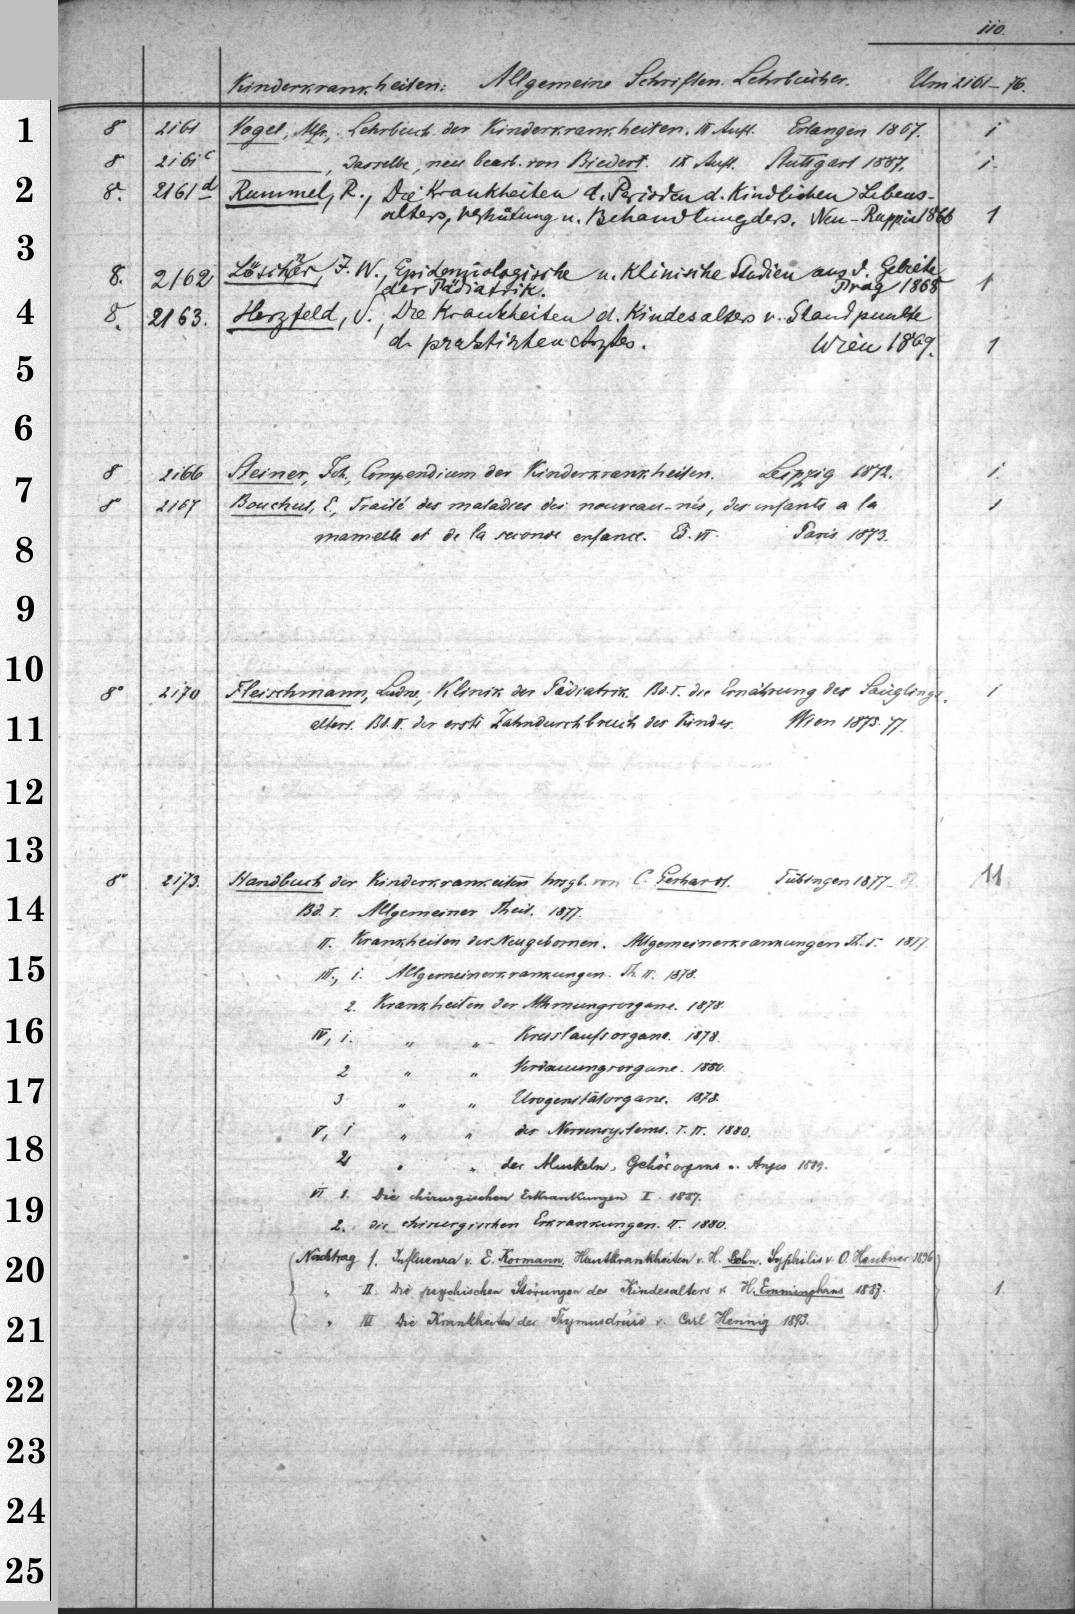 110.
Kinderkrankheiten: Allgemeine Schriften. Lehrbücher. Um 2161-76.
1
8 2161 Vogel, Alfr., Lehrbuch der Kinderkrankheiten. III Aufl. Erlangen 1867. 1
8 2161c ———, Dasselbe, neu bearb. von Biedert. IX Aufl. Stuttgart 1887. 1.
2
8. 2161d Rummel, R., Die Krankheiten d. Perioden d. Kindlichen Lebens-
alters, Verhütung u. Behandlung ders. Neu-Ruppin 1866 1
3
8. 2162 Löschner, F. W., Epidemiologische u. Klinische Studien aus d. Gebiete
der Pädiatrik. Prag 1868 1
4
8. 2163. Herzfeld, S., Die Krankheiten d. Kindesalters v. Standpunkte
d. praktischen Arztes. Wien 1869. 1
5
6
8 2166 Steiner, Joh., Compendium der Kinderkrankheiten. Leipzig 1872. 1.
7
8 2167 Bouchut, E., Traité des maladies des nouveau-nés, des enfants a la 1
mamelle et de la seconde enfance. Éd. VI. Paris 1873.
8
9
10
8° 2170 Fleischmann, Ludw., Klinik der Pädiatrik. Bd. I. die Ernährung des Säuglings- 1
alters. Bd. II. der erste Zahndurchbruch der Kinder. Wien 1875. 77.
11
12
13
8° 2173. Handbuch der Kinderkrankeiten hrsgb. von C. Gerhardt. Tübingen 1877- 11
14
Bd. I. Allgemeiner Theil. 1877.
II. Krankheiten der Neugebornen. Allgemeinerkrankungen Th. I. 1877.
15
III., 1. Allgemeinerkrankungen. Th. II. 1878.
2. Krankheiten der Athmungsorgane. 1878.
16
IV, 1. " " Kreislaufsorgane. 1878.
2 " " Verdauungsorgane. 1880.
17
3 " " Urogenitalorgane. 1878.
V, 1 " " des Nervensystems. I. II. 1880.
18
2 " " der Muskeln, Gehörorgans u. Auges 1889.
VI 1. Die chirurgischen Erkrankungen I. 1887.
19
2. die chirurgischen Erkrankungen. II. 1880.
20
Nachtrag I. Influenza v. E. Kormann, Hautkrankheiten v. H. Bohn. Syphilis v. O. Heubner 1896
" II Die psychischen Störungen des Kindesalters v. H. Emminghaus 1887. 1.
21
" III Die Krankheiten der Thymusdrüse v. Carl Hennig 1893.
22
23
24
25